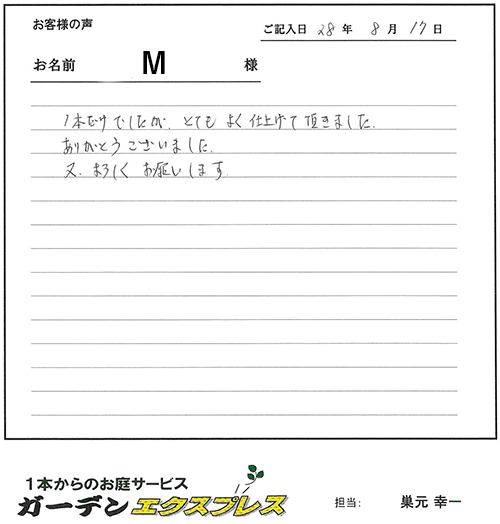 お客様の声
ご記入日 28年 8月 17日
お名前 M 様
1本だけでしたが、とてもよく仕上げて頂きました。
ありがとうございました。
又、よろしくお願いします。
1本からのお庭サービス
ガーデンエクスプレス
担当: 巣元 幸一